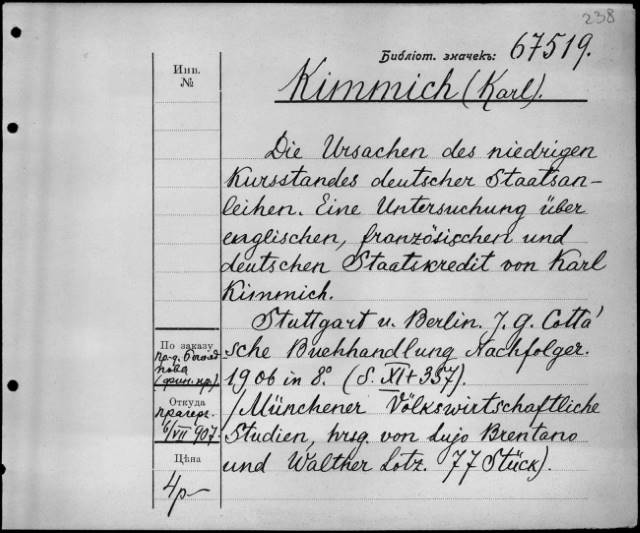 238
Библіот. значекъ: 67519.
Инв.
№
Kimmich (Karl).
Die Ursachen des niedrigen
Kursstandes deutscher Staatsan-
leihen. Eine Untersuchung über
englischen, französischen und
deutschen Staatskredit von Karl
Kimmich.
Stuttgart u. Berlin. J. G. Cotta'
sche Buchhandlung Nachfolger.
1906 in 8º. (S. XI + 337).
(Münchener Volkswirtschaftliche
Studien, hrsg. von Lujo Brentano
und Walther Lotz. 77 Stück).
По заказу
(фин. пр.)
Откуда
6/VII 907.
Цѣна
4р–